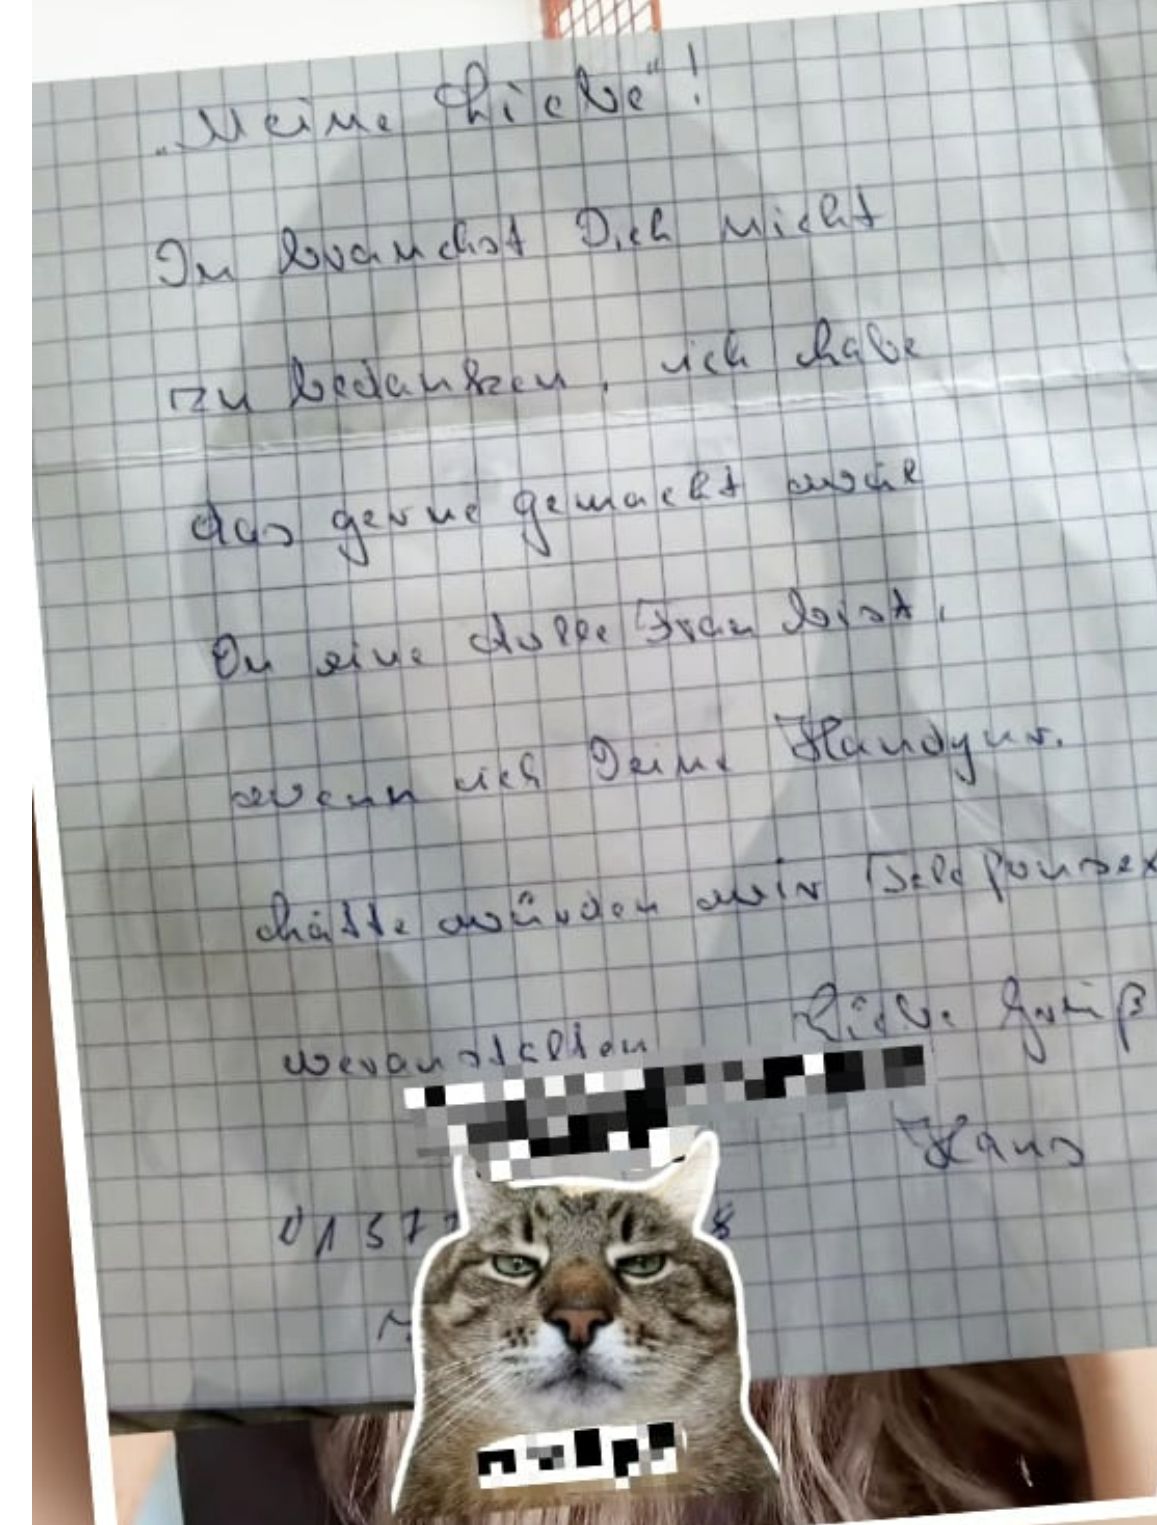 „Meine Liebe"!
Du brauchst Dich nicht
zu bedanken, ich habe
das gerne gemacht weil
Du eine tolle Frau bist,
wenn ich Deine Handynr.
hätte würden wir Telefonsex
veranstalten Liebe Grüß
Hans